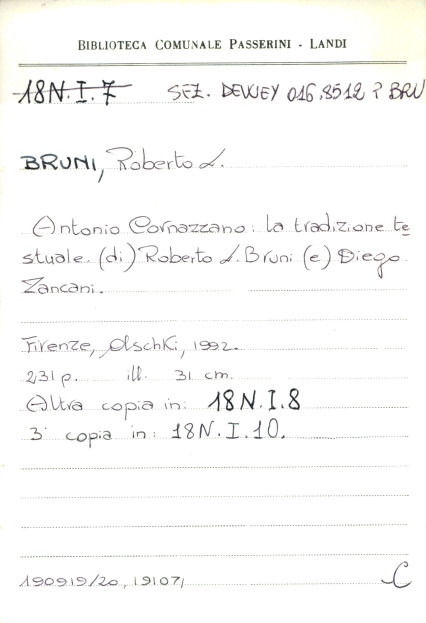 BIBLIOTECA COMUNALE PASSERINI - LANDI
18N.I.7 SEZ. DEWEY 016.8512 P BRU
BRUNI, Roberto L.
Antonio Cornazzano: la tradizione te
stuale. (di) Roberto L. Bruni (e) Diego
Zancani.
Firenze, Olschki, 1992.
231 p. ill. 31 cm.
Altra copia in: 18N.I.8
3ª copia in: 18N.I.10.
190919/20, 191071
C